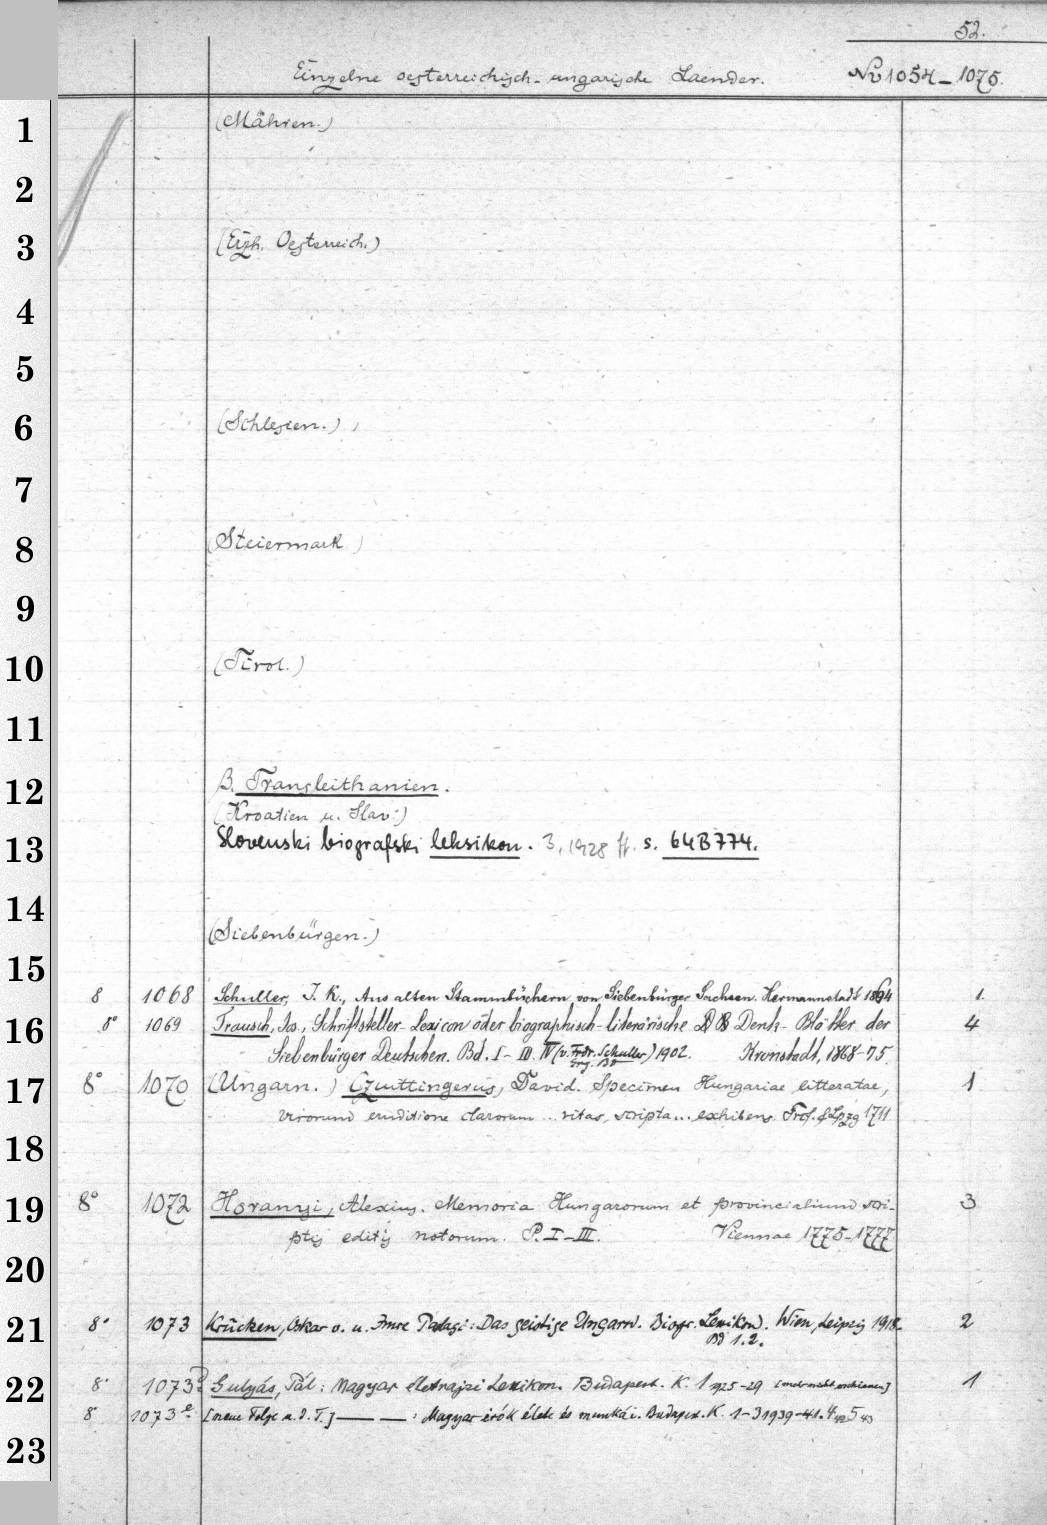 52.
Einzelne oesterreichisch-ungarische Laender. No 1054-1075.
1
(Mähren.)
2
3
(Erzh. Oesterreich.)
4
5
6
(Schlesien.)
7
8
(Steiermark)
9
10
(Tirol.)
11
12
B. Transleithanien.
(Kroatien u. Slav.)
13
Slovenski biografski leksikon. 3, 1928 ff. s. 64B774.
14
(Siebenbürgen.)
15
8 1068 Schuller, J. K., Aus alten Stammbüchern von Siebenbürger Sachsen. Hermannstadt 1864 1.
16
8° 1069 Trausch, Jos., Schriftsteller-Lexicon oder biographisch-literärische Denk-Blätter der 4
Siebenbürger Deutschen. Bd. I-III. IV (v. Frdr. Schuller) 1902. Kronstadt, 1868-75.
Erg. Bd
17
8° 1070 (Ungarn.) Czwittingerus, David. Specimen Hungariae litteratae, 1
virorum eruditione clarorum .. vitas, scripta... exhibens. Frcf. & Lpzg 1711
18
19
8° 1072 Horanyi, Alexius. Memoria Hungarorum et provincialium scri- 3
ptis editis notorum. P. I-III. Viennae 1775-1777
20
21
8° 1073 Krücken, Oskar v. u. Imre Parlagi: Das geistige Ungarn. Biogr. Lexikon. Wien, Leipzig 1918. 2
Bd 1.2.
22
8° 1073 Gulyás, Pál: Magyar életrajzi Lexikon. Budapest. K. 1 1925-29 [mehr nicht erschienen] 1
8 1073e [neue Folge u. d. T.] — — : Magyar írók élete és munkái. Budapest. K. 1-3 1939-41. 4 42 5 43
23